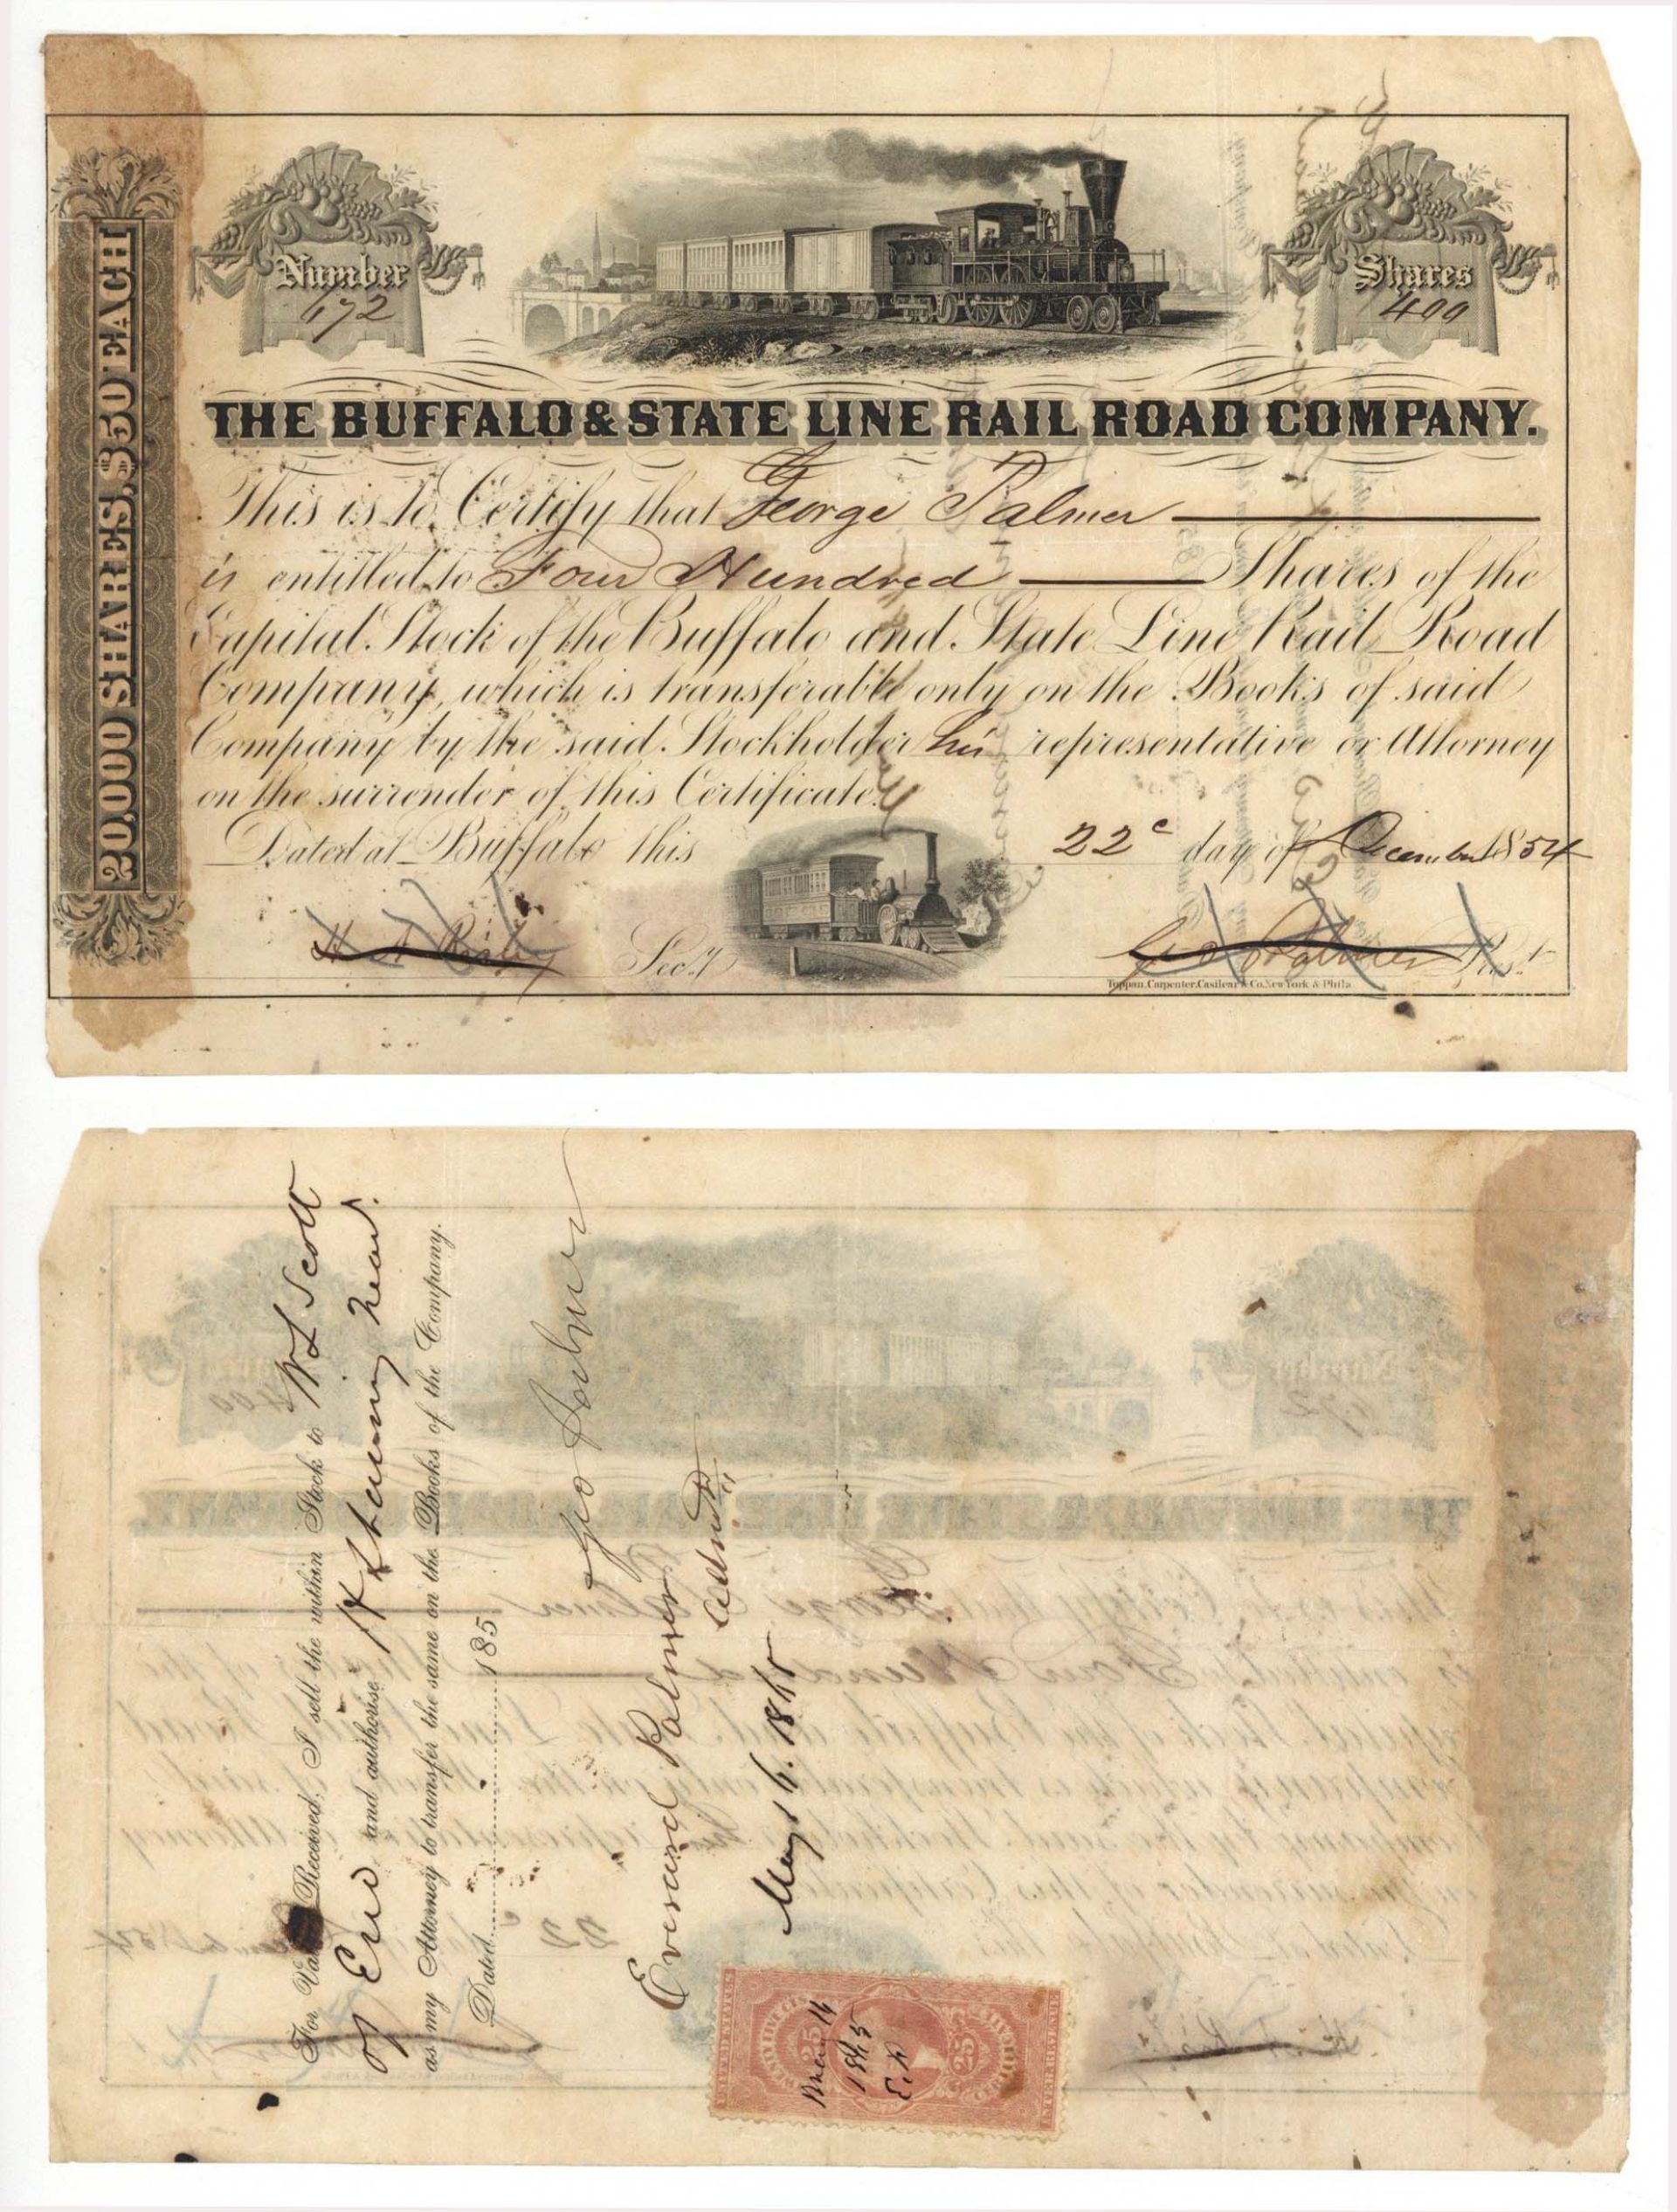 20,000 SHARES, $50 EACH
Number
672
Shares
400
THE BUFFALO & STATE LINE RAIL ROAD COMPANY.
This is to Certify that George Palmer
is entitled to Four Hundred Shares of the
Capital Stock of the Buffalo and State Line Rail Road
Company, which is transferable only on the Books of said
Company by the said Stockholder his representative or Attorney
on the surrender of this Certificate.
Dated at Buffalo this 22d day of December 1854
Secy.
Geo Palmer Prest.
Toppan, Carpenter, Casilear & Co. New York & Phila.
For Value Received, I sell the within Stock to W L Scott
of Erie and authorise
as my Attorney to transfer the same on the Books of the Company.
Dated 185
Geo Palmer
Everard Palmer
Admr
May 16. 1865
UNITED STATES
TWENTY FIVE CTS
25 25
INTER. REV.
May 16
1865
E.P.